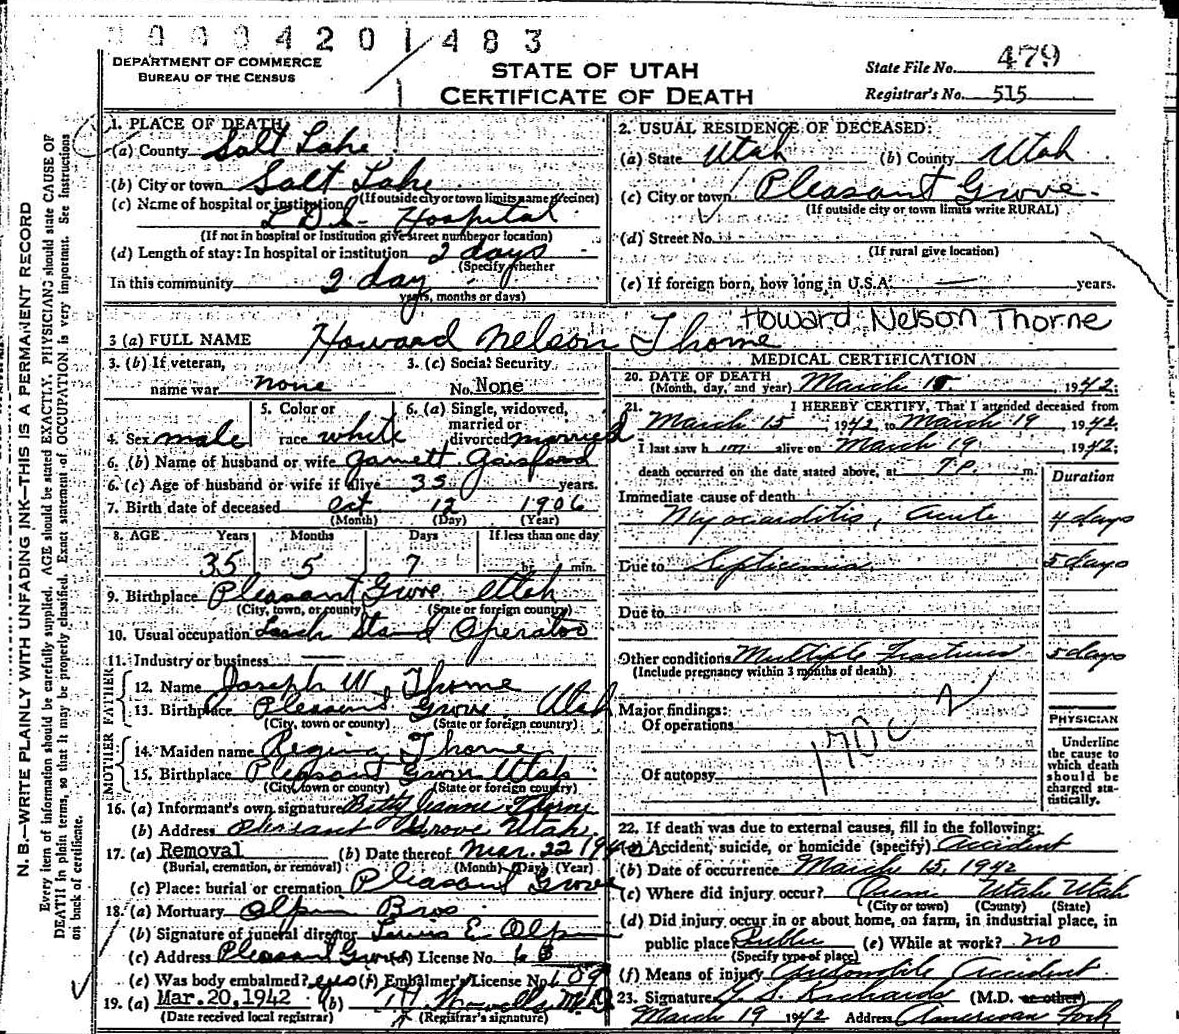 0004201483
DEPARTMENT OF COMMERCE
BUREAU OF THE CENSUS
STATE OF UTAH
CERTIFICATE OF DEATH
State File No. 479
Registrar's No. 515
N. B.—WRITE PLAINLY WITH UNFADING INK—THIS IS A PERMANENT RECORD
Every item of information should be carefully supplied. AGE should be stated EXACTLY. PHYSICIANS should state CAUSE OF
DEATH in plain terms, so that it may be properly classified. Exact statement of OCCUPATION is very important. See instructions
on back of certificate.
1. PLACE OF DEATH:
(a) County Salt Lake
(b) City or town Salt Lake
(If outside city or town limits name precinct)
(c) Name of hospital or institution
L.D.S. Hospital
(If not in hospital or institution give street number or location)
(d) Length of stay: In hospital or institution 2 days
(Specify whether
In this community 2 day
years, months or days)
2. USUAL RESIDENCE OF DECEASED:
(a) State Utah (b) County Utah
(c) City or town Pleasant Grove
(If outside city or town limits write RURAL)
(d) Street No.
(If rural give location)
(e) If foreign born, how long in U.S.A. — years.
3 (a) FULL NAME Howard Nelson Thorne
Howard Nelson Thorne
3. (b) If veteran,
name war none
3. (c) Social Security
No. None
4. Sex male
5. Color or
race white
6. (a) Single, widowed,
married or
divorced married
6. (b) Name of husband or wife Garnett Gaisford
6. (c) Age of husband or wife if alive 35 years.
7. Birth date of deceased Oct 12 1906
(Month) (Day) (Year)
8. AGE Years Months Days If less than one day
35 5 7 hr. min.
9. Birthplace Pleasant Grove Utah
(City, town, or county) (State or foreign country)
10. Usual occupation Stand Operator
11. Industry or business —
FATHER
12. Name Joseph W. Thorne
13. Birthplace Pleasant Grove Utah
(City, town or county) (State or foreign country)
MOTHER
14. Maiden name Regina Thorne
15. Birthplace Pleasant Grove Utah
(City, town or county) (State or foreign country)
16. (a) Informant's own signature Betty Jeanne Thorne
(b) Address Pleasant Grove Utah
17. (a) Removal (b) Date thereof Mar. 22 19
(Burial, cremation, or removal) (Month) (Day) (Year)
(c) Place: burial or cremation Pleasant Grove
18. (a) Mortuary Olpin Bros
(b) Signature of funeral director Lewis E. Olpin
(c) Address Pleasant Grove License No.
(e) Was body embalmed? yes (f) Embalmer's License No.
19. (a) Mar. 20, 1942 (b)
(Date received local registrar) (Registrar's signature)
MEDICAL CERTIFICATION
20. DATE OF DEATH
(Month, day, and year) March , 1942.
21. I HEREBY CERTIFY, That I attended deceased from
March 15, 1942 to March 19, 1942.
I last saw him alive on March 19, 1942;
death occurred on the date stated above, at 7 P. m.
Duration
Immediate cause of death
Myocarditis, Acute 4 days
Due to Septicemia 5 days
Due to
Other conditions Multiple Fractures 5 days
(Include pregnancy within 3 months of death)
Major findings:
Of operations
170c
Of autopsy
PHYSICIAN
Underline
the cause to
which death
should be
charged sta-
tistically.
22. If death was due to external causes, fill in the following:
(a) Accident, suicide, or homicide (specify) Accident
(b) Date of occurrence March 15, 1942
(c) Where did injury occur? Utah Utah
(City or town) (County) (State)
(d) Did injury occur in or about home, on farm, in industrial place, in
public place? Public (e) While at work? no
(Specify type of place)
(f) Means of injury Automobile Accident
23. Signature G. S. Richards (M.D. or other)
March 19 1942 Address American Fork